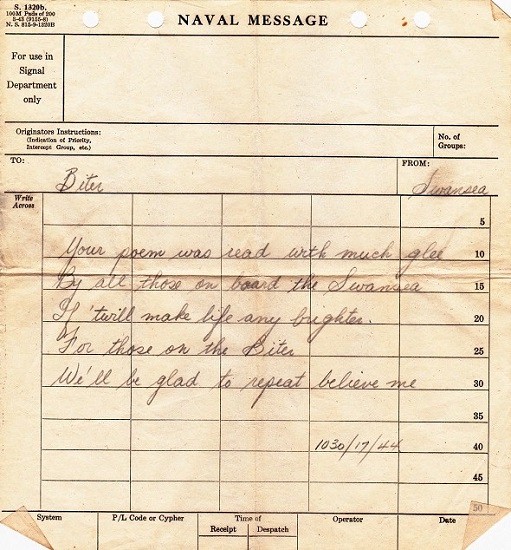 S. 1320b.
100M Pads of 200
S-43 (9155-8)
N. S. 815-9-1320B
NAVAL MESSAGE
For use in
Signal
Department
only
Originators Instructions:
(Indication of Priority,
Intercept Group, etc.)
No. of
Groups:
TO:
FROM:
Biter
Swansea
Write
Across
5
Your poem was read with much glee
10
By all those on board the Swansea
15
If 'twill make life any brighter.
20
For those on the Biter
25
We'll be glad to repeat believe me
30
35
1030/17/44
40
45
50
System
P/L Code or Cypher
Time of
Receipt
Despatch
Operator
Date